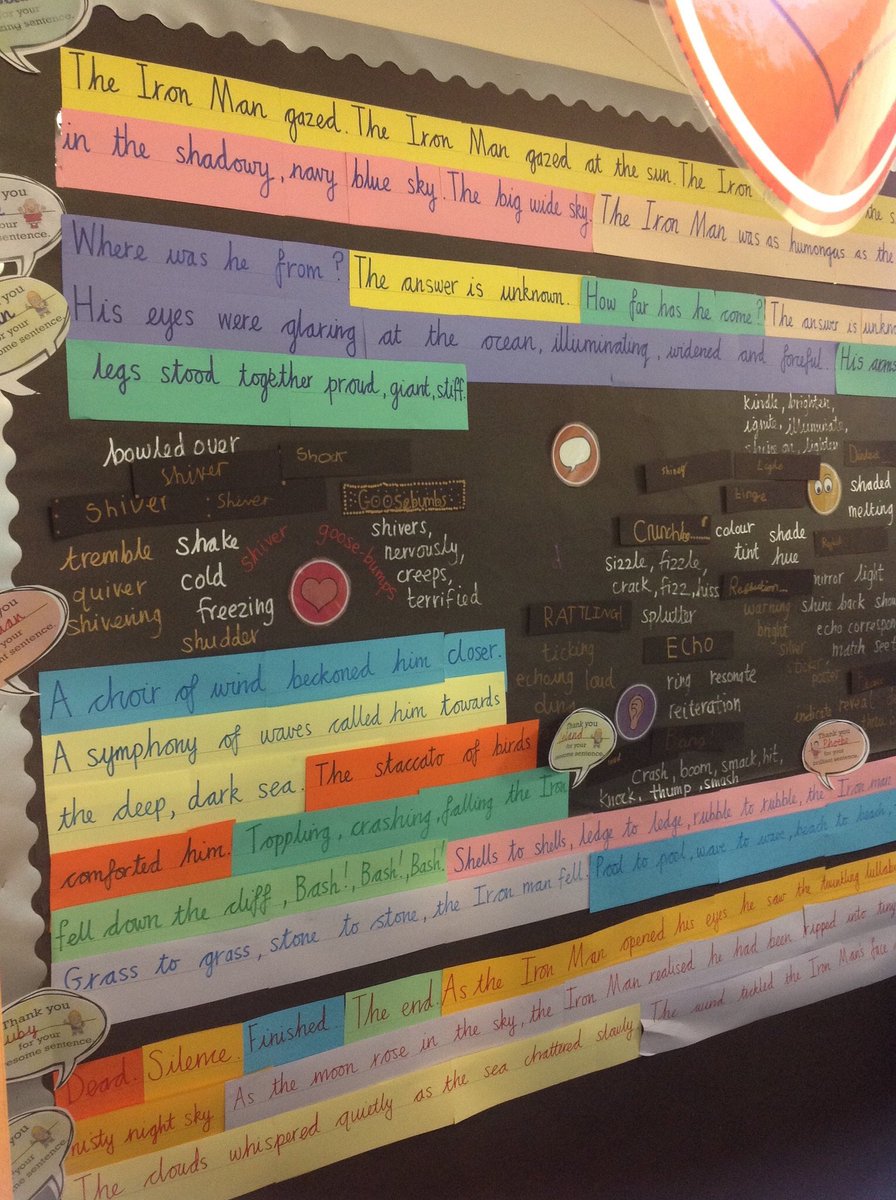 The Iron Man gazed. The Iron Man gazed at the sun. The Iron
in the shadowy, navy blue sky. The big wide sky. The Iron Man was as humongas as the
Where was he from? The answer is unknown. How far has he come? The answer is
His eyes were glaring at the ocean, illuminating, widened and forceful. His arms
legs stood together proud, giant, stiff.
kindle, brighten,
ignite, illuminate,
bowled over
shiver
Shiver
Goosebumbs
tremble
shake
shiver
goose-bumps
shivers,
nervously,
creeps,
terrified
quiver
cold
shivering
freezing
shudder
Crunch
colour
shade
tint
hue
shaded
melting
sizzle, fizzle,
crack, fizz, hiss
mirror light
RATTLING!
splutter
warning
bright
shine back
echo
match
ticking
ECHO
echoing loud
ring resonate
reiteration
Crash, boom, smack, hit,
knock, thump, smash
Thank you
for your
Thank you
Phoebe
for your
brilliant sentence.
A choir of wind beckoned him closer.
A symphony of waves called him towards
the deep, dark sea. The staccato of birds
comforted him. Toppling, crashing, falling the Iron
fell down the cliff, Bash!, Bash!, Bash! Shells to shells, ledge to ledge, rubble to rubble, the Iron man
Grass to grass, stone to stone, the Iron man fell. Pool to pool, wave to wave, beach to beach
Dead. Silence. Finished. The end. As the Iron Man opened his eyes he saw the
night sky As the moon rose in the sky, the Iron Man realised he had been ripped into
The clouds whispered quietly as the sea chattered slowly The wind tickled the Iron Man's face
Thank you
for your
sentence.